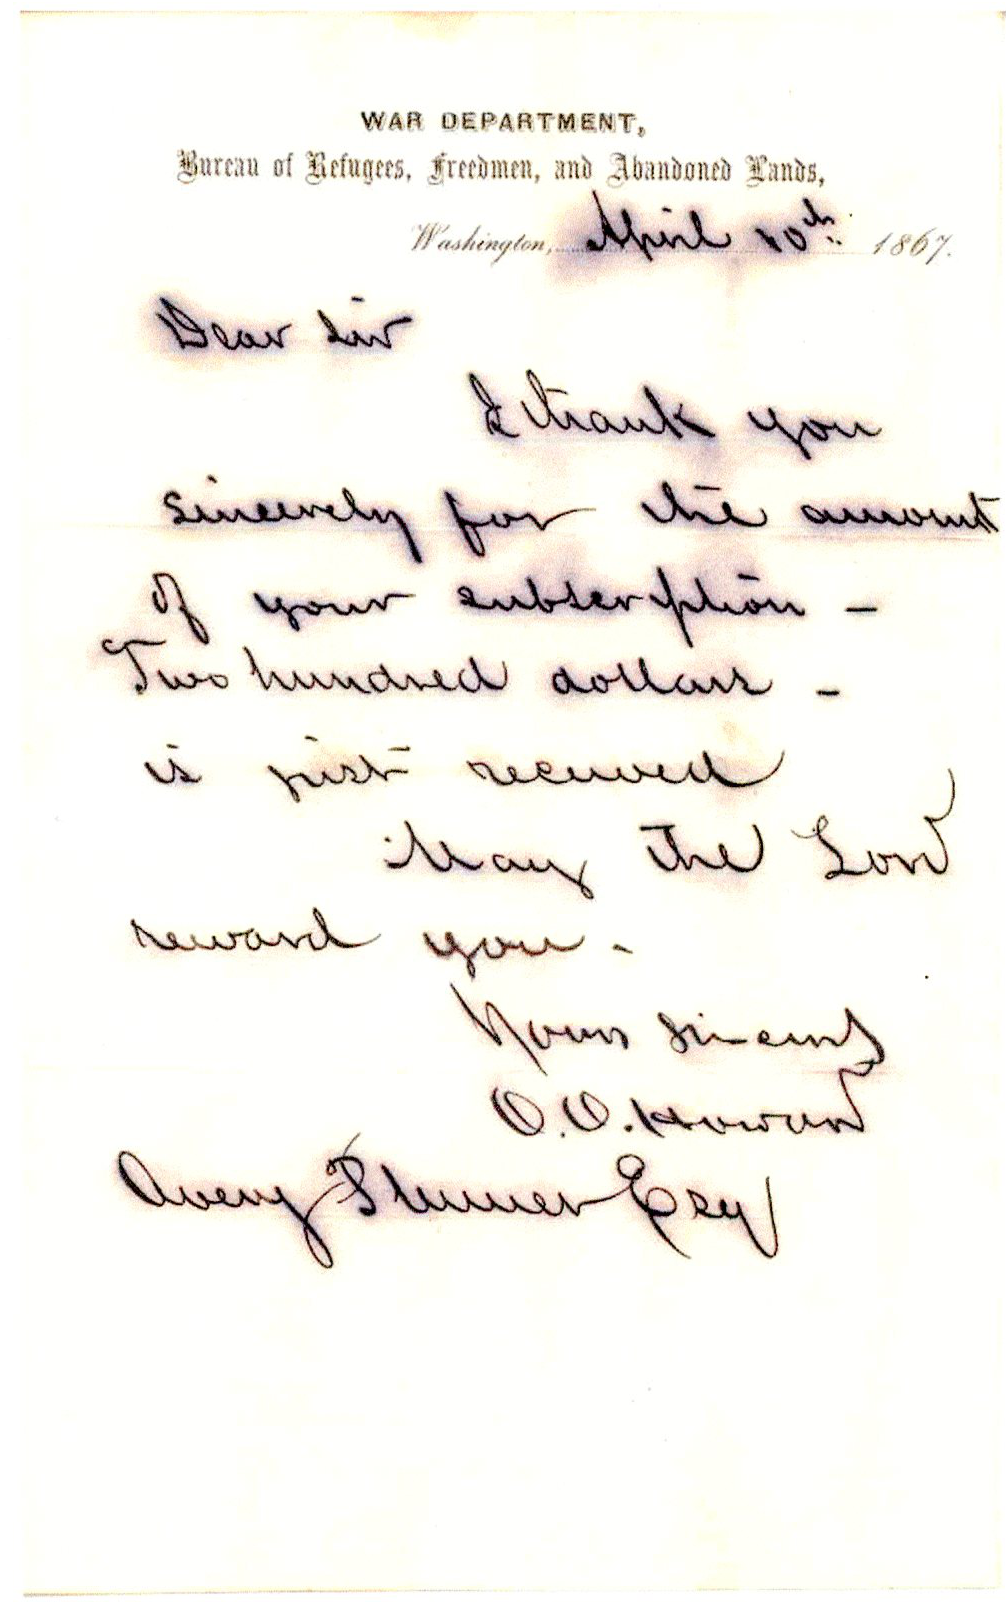 WAR DEPARTMENT,
Bureau of Refugees, Freedmen, and Abandoned Lands,
Washington, April 10th. 1867.
Dear Sir
I thank you
sincerely for the amount
of your subscription -
Two hundred dollars -
is just received
May the Lord
reward you -
Yours Sincerely
O. O. Howard
Avery Plumer Esq